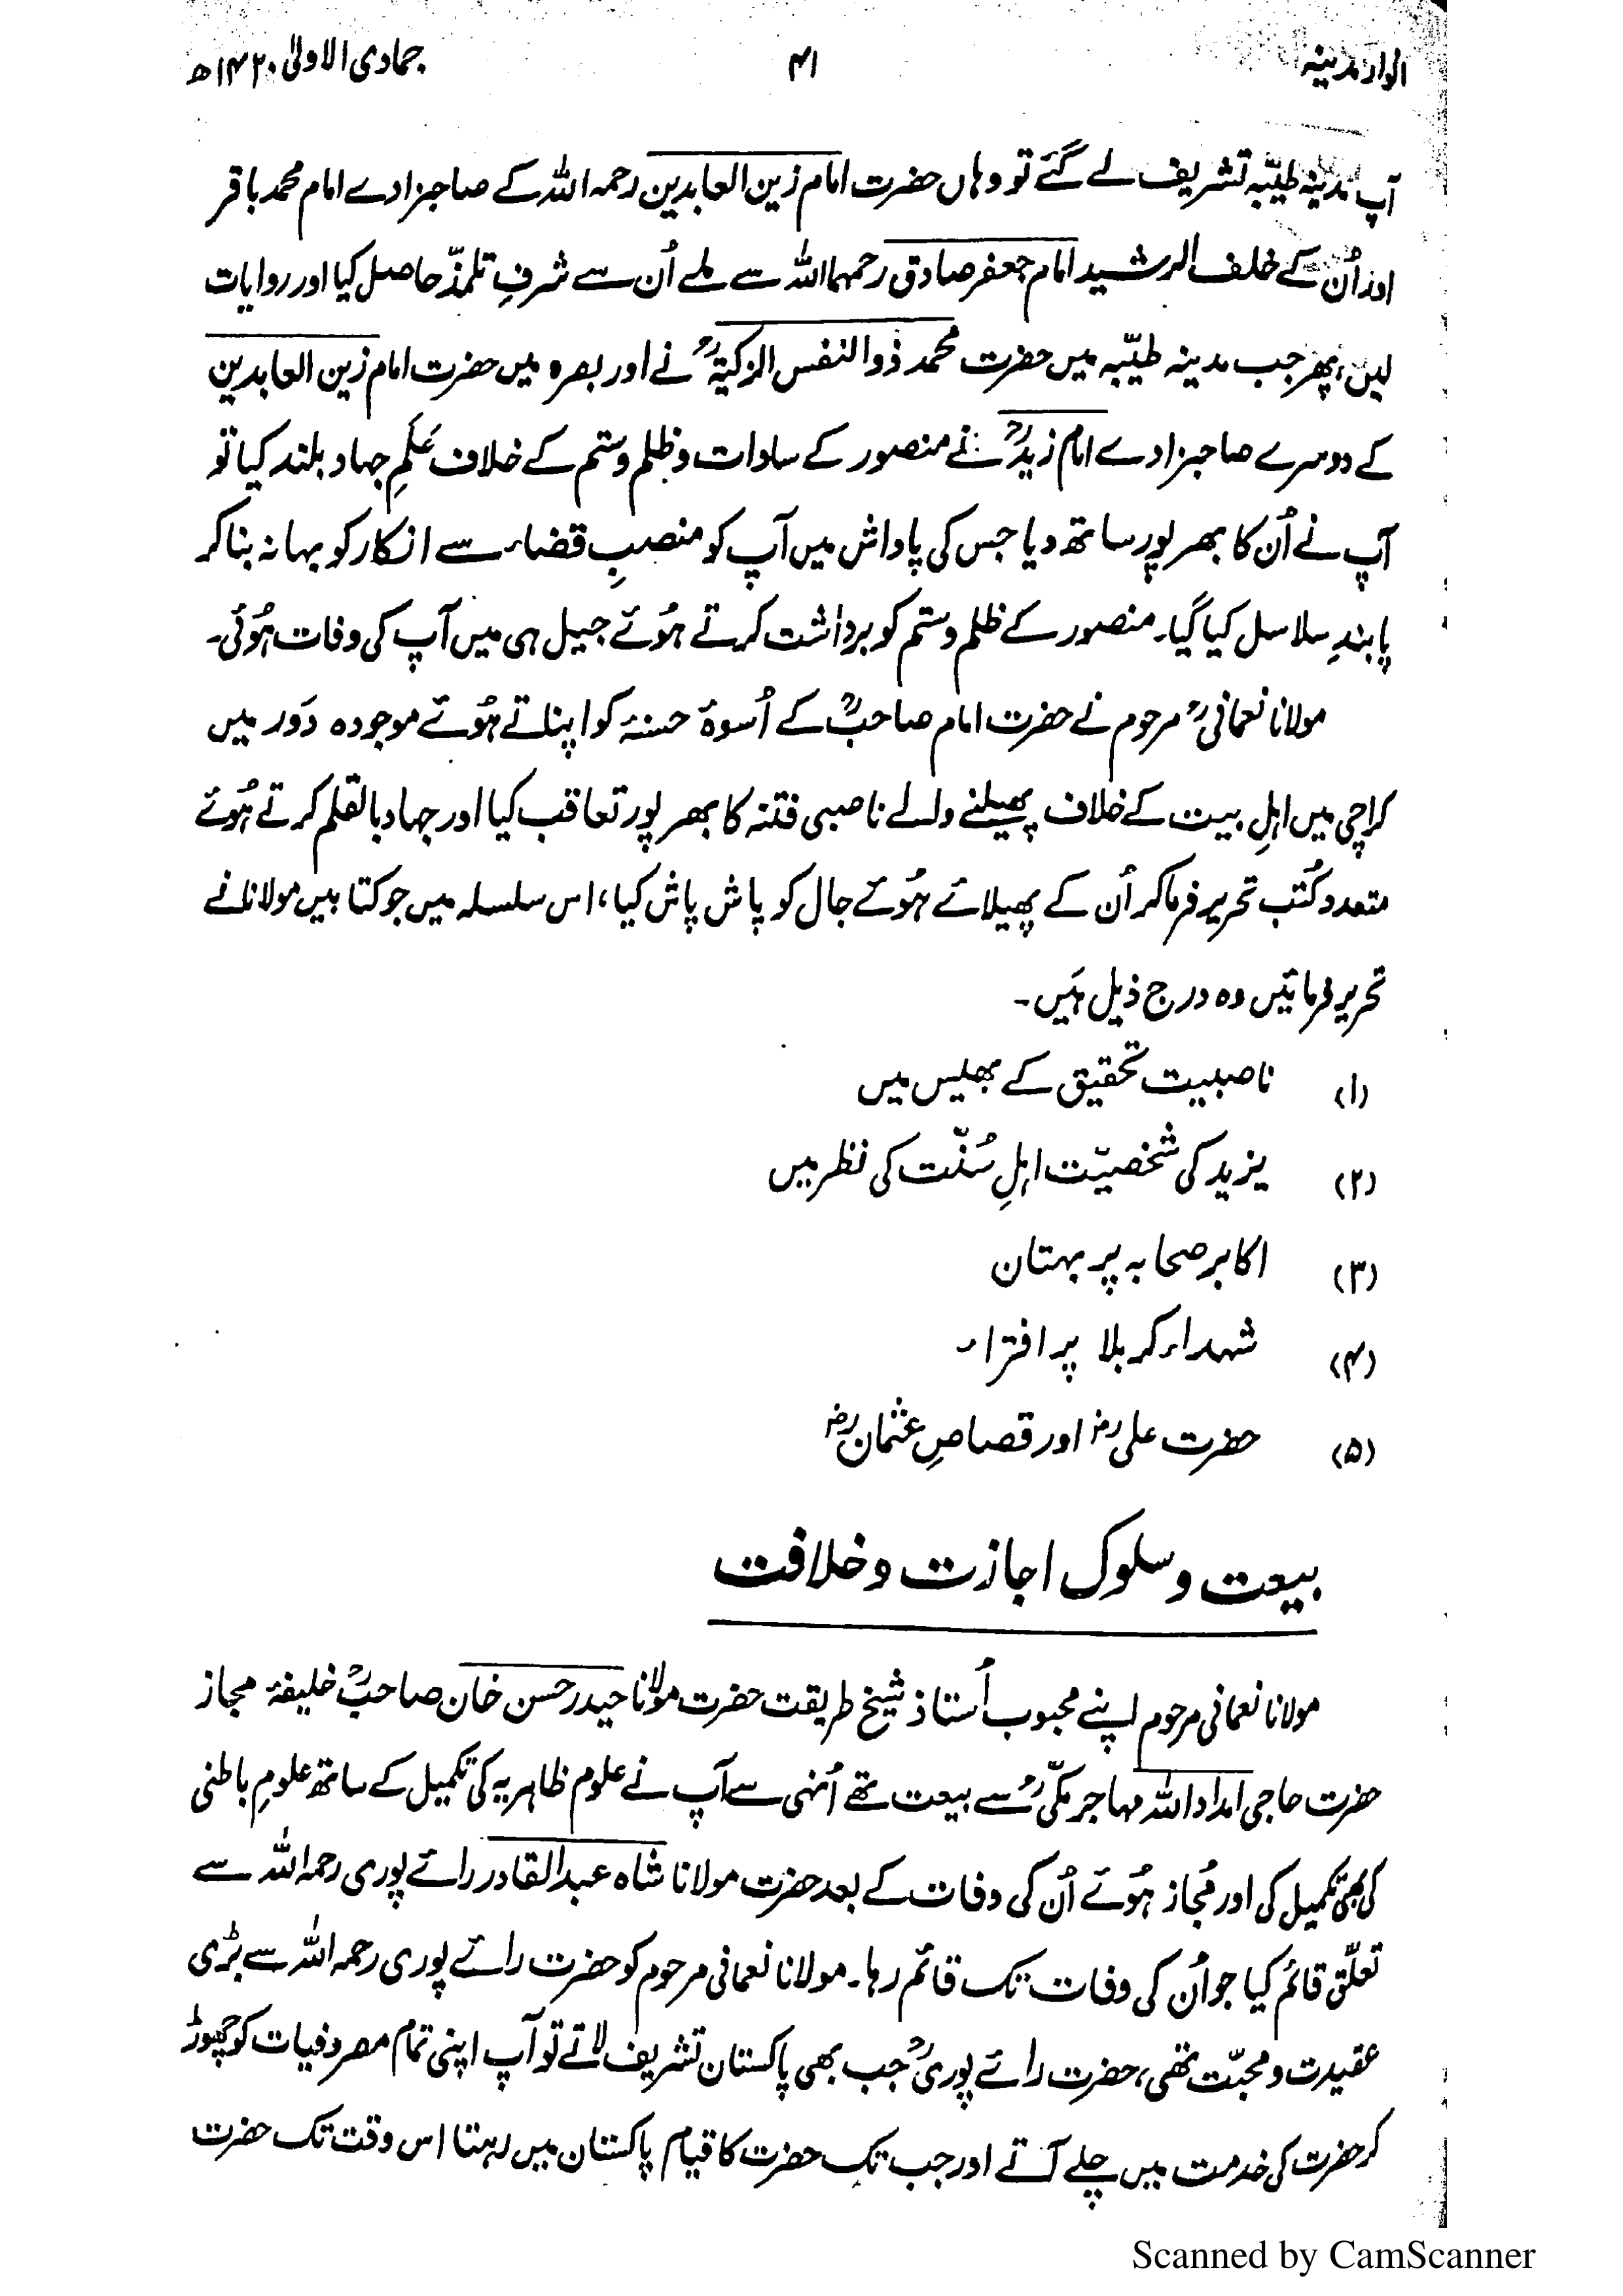 انوار مدینہ ۴۱ جمادی الاولیٰ ۱۴۲۰ھ
آپ مدینہ طیّبہ تشریف لے گئے تو وہاں حضرت امام زین العابدین رحمہ اللہ کے صاحبزادے امام محمد باقر
اور اُن کے خلف الرشید امام جعفر صادق رحمہما اللہ سے ملے اُن سے شرفِ تلمذّ حاصل کیا اور روایات
لیں، پھر جب مدینہ طیّبہ میں حضرت محمد ذوالنفس الزکیۃؒ نے اور بصرہ میں حضرت امام زین العابدین
کے دوسرے صاحبزادے امام زیدؒ نے منصور کے سادات و ظلم و ستم کے خلاف عَلَمِ جہاد بلند کیا تو
آپ نے اُن کا بھرپور ساتھ دیا جس کی پاداش میں آپ کو منصبِ قضاء سے انکار کو بہانہ بنا کر
پابندِ سلاسل کیا گیا۔ منصور کے ظلم و ستم کو برداشت کرتے ہُوئے جیل ہی میں آپ کی وفات ہُوئی۔
مولانا نعمانیؒ مرحوم نے حضرت امام صاحبؒ کے اُسوۂ حسنہ کو اپناتے ہُوئے موجودہ دَور میں
کراچی میں اہلِ بیت کے خلاف پھیلنے والے ناصبی فتنہ کا بھرپور تعاقب کیا اور جہاد بالقلم کرتے ہُوئے
متعدد کُتب تحریر فرما کر اُن کے پھیلائے ہُوئے جال کو پاش پاش کیا، اس سلسلہ میں جو کتابیں مولانا نے
تحریر فرمائیں وہ درج ذیل ہَیں۔
(۱) ناصبیت تحقیق کے بھیس میں
(۲) یزید کی شخصیّت اہلِ سُنّت کی نظر میں
(۳) اکابر صحابہ پر بہتان
(۴) شہداء کربلا پر افتراء
(۵) حضرت علیؓ اور قصاصِ عثمانؓ
بیعت و سلوک اجازت و خلافت
مولانا نعمانی مرحوم اپنے محبوب اُستاذ شیخ طریقت حضرت مولانا حیدر حسن خان صاحبؒ خلیفۂ مجاز
حضرت حاجی امداد اللہ مہاجر مکّیؒ سے بیعت تھے اُنہی سے آپ نے علوم ظاہریہ کی تکمیل کے ساتھ علومِ باطنی
کی بھی تکمیل کی اور مُجاز ہُوئے اُن کی وفات کے بعد حضرت مولانا شاہ عبدالقادر رائے پوری رحمہ اللہ سے
تعلّق قائم کیا جو اُن کی وفات تک قائم رہا۔ مولانا نعمانی مرحوم کو حضرت رائے پوری رحمہ اللہ سے بڑی
عقیدت و محبّت تھی، حضرت رائے پوریؒ جب بھی پاکستان تشریف لاتے تو آپ اپنی تمام مصروفیات کو چھوڑ
کر حضرت کی خدمت میں چلے آتے اور جب تک حضرت کا قیام پاکستان میں رہتا اس وقت تک حضرت
Scanned by CamScanner